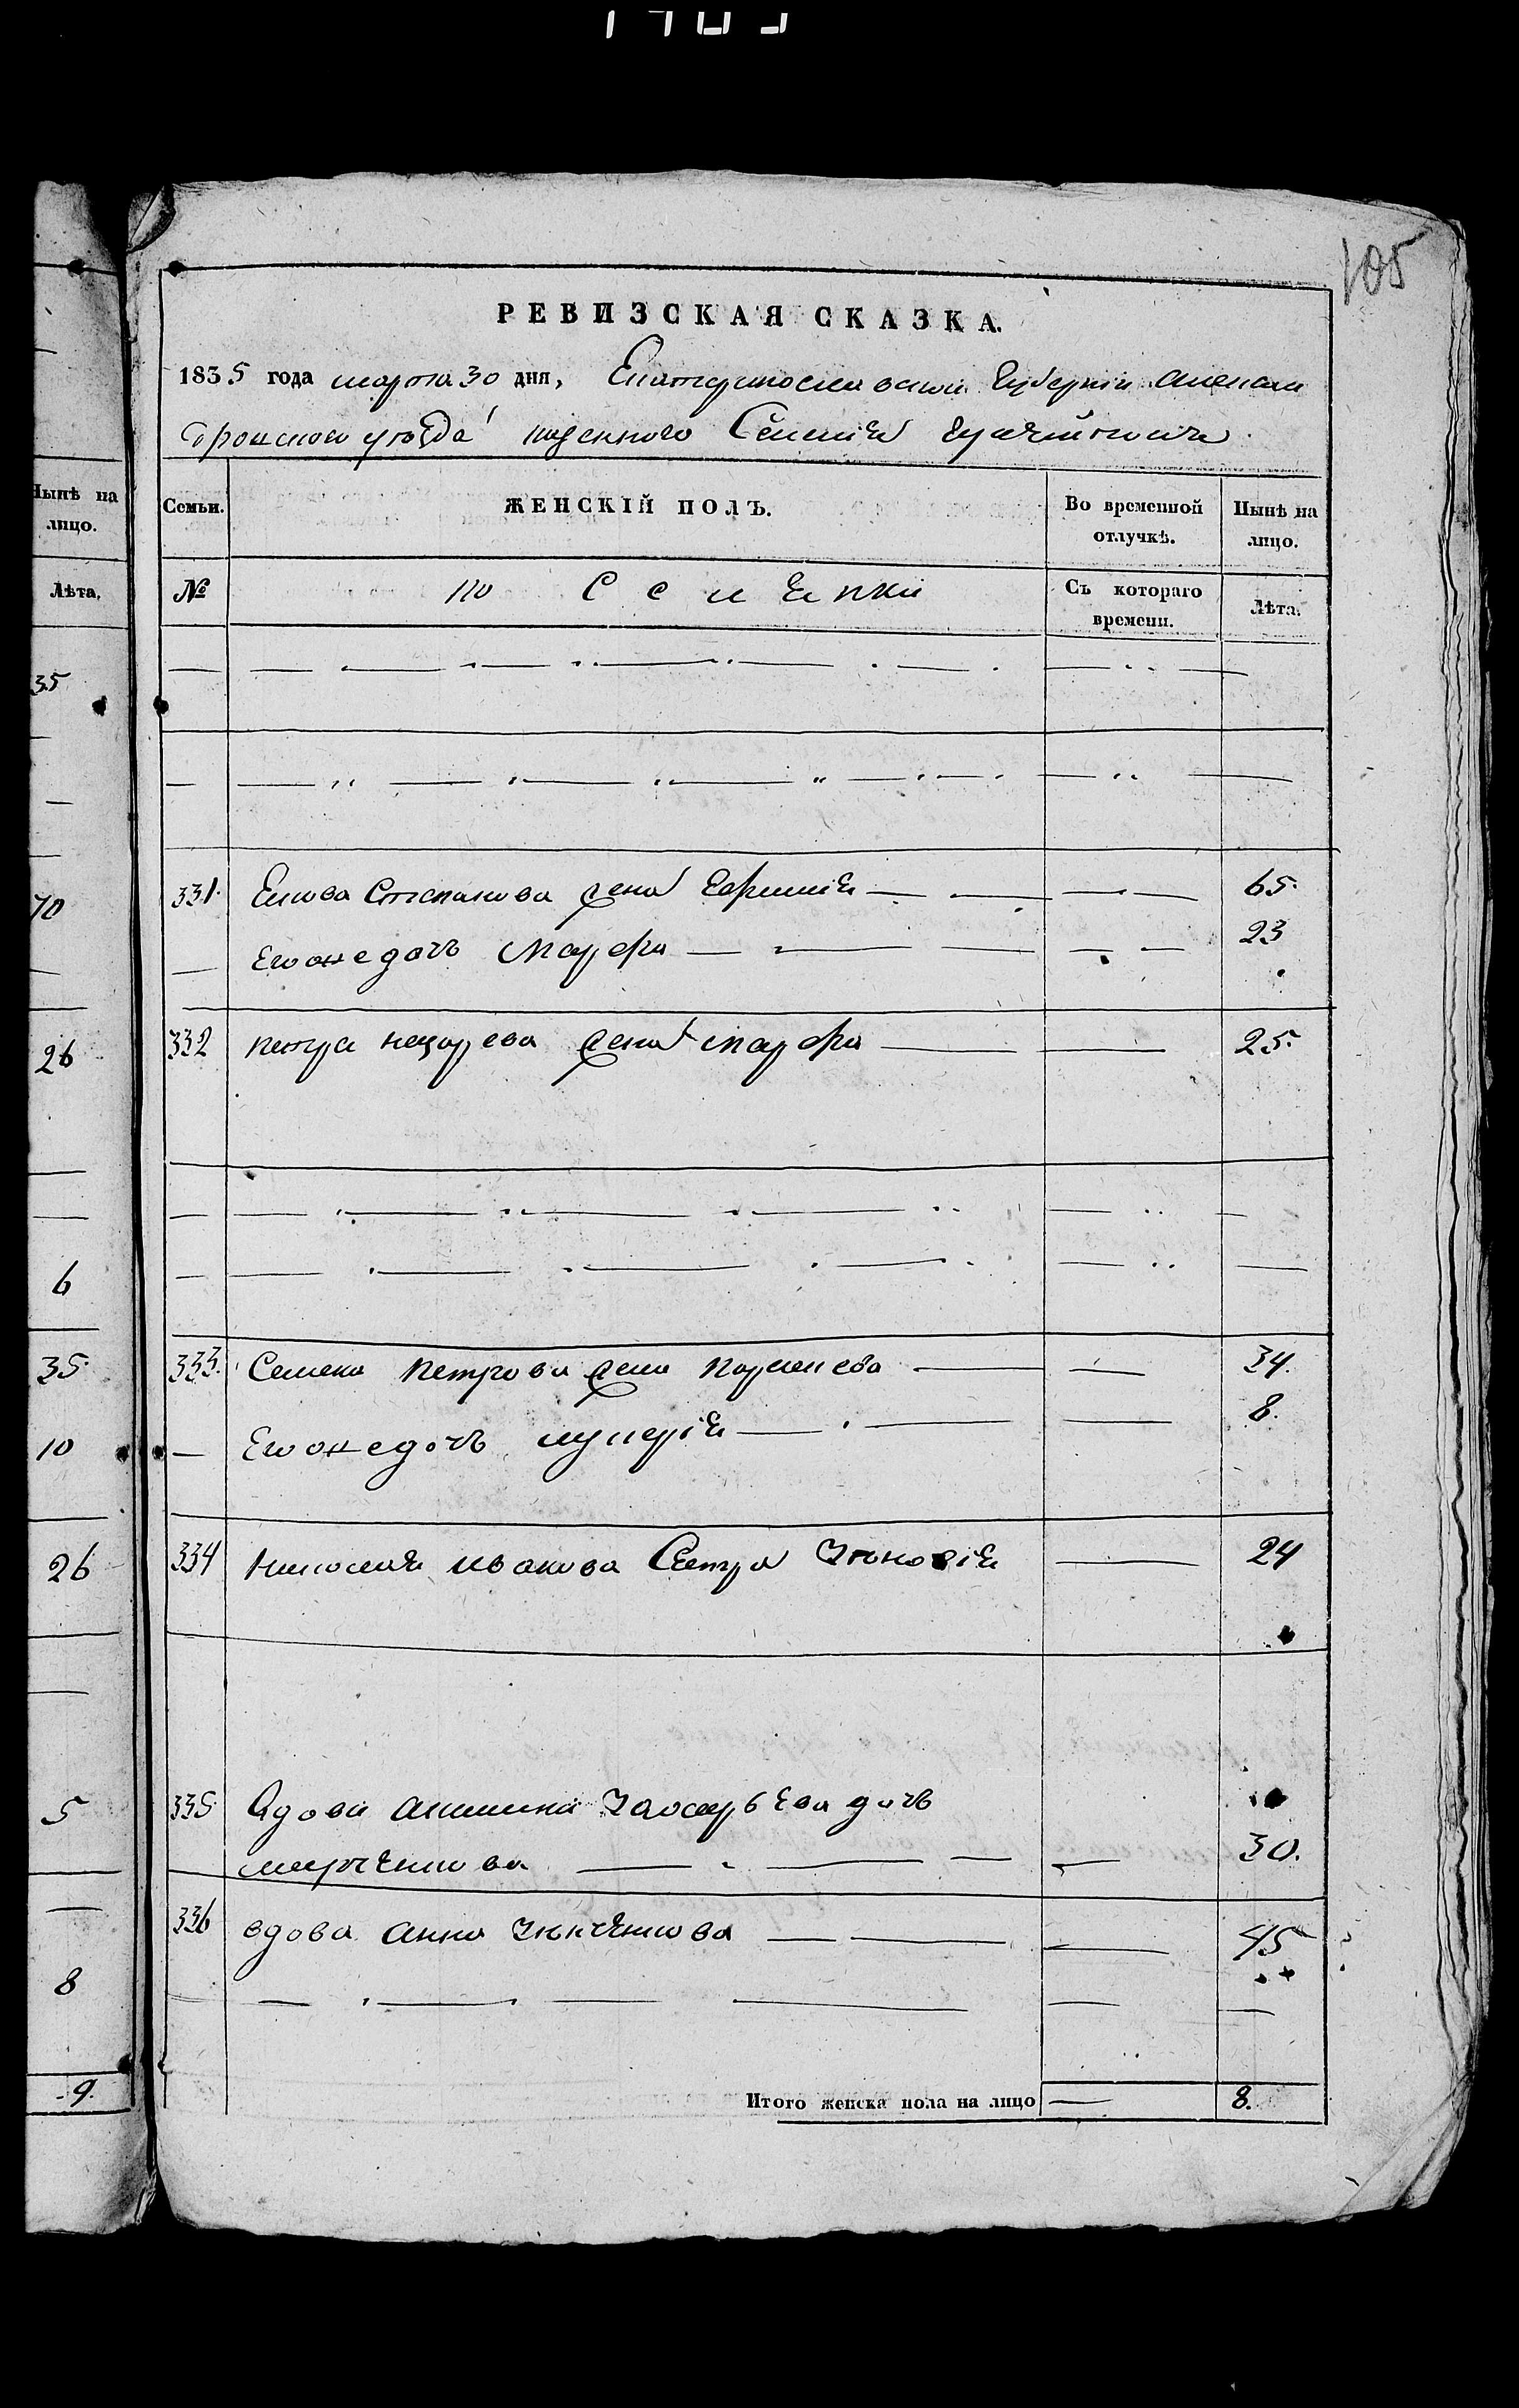 105
РЕВИЗСКАЯ СКАЗКА.
1835 года марта 30 дня, Екатеринославской Губернии Алексан
дровского уезда казенного Селения Гуляйполя
Нынѣ на лицо.
Лѣта.
35
70
26
6
35
10
26
5
8
9.
Семьи. ЖЕНСКІЙ ПОЛЪ. Во временной отлучкѣ. Нынѣ на лицо.
№ Съ котораго времени. Лѣта.
331. Степанова жена Евфимия 65.
— Его же дочь Марфа 23
332 Петра Назарева жена Марфа 25.
333. Семена Петрова жена 34.
— Его же дочь Лукерія 8.
334 Николая Иванова Сестра Зиновія 24
335 Вдова Акилина дочь
30.
336 вдова Анна 45
Итого женска пола на лицо — 8.